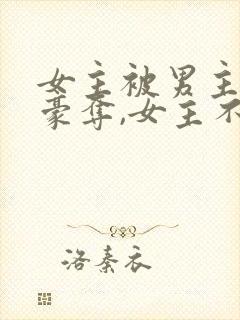 女主被男主
豪夺,女主不
洛秦衣